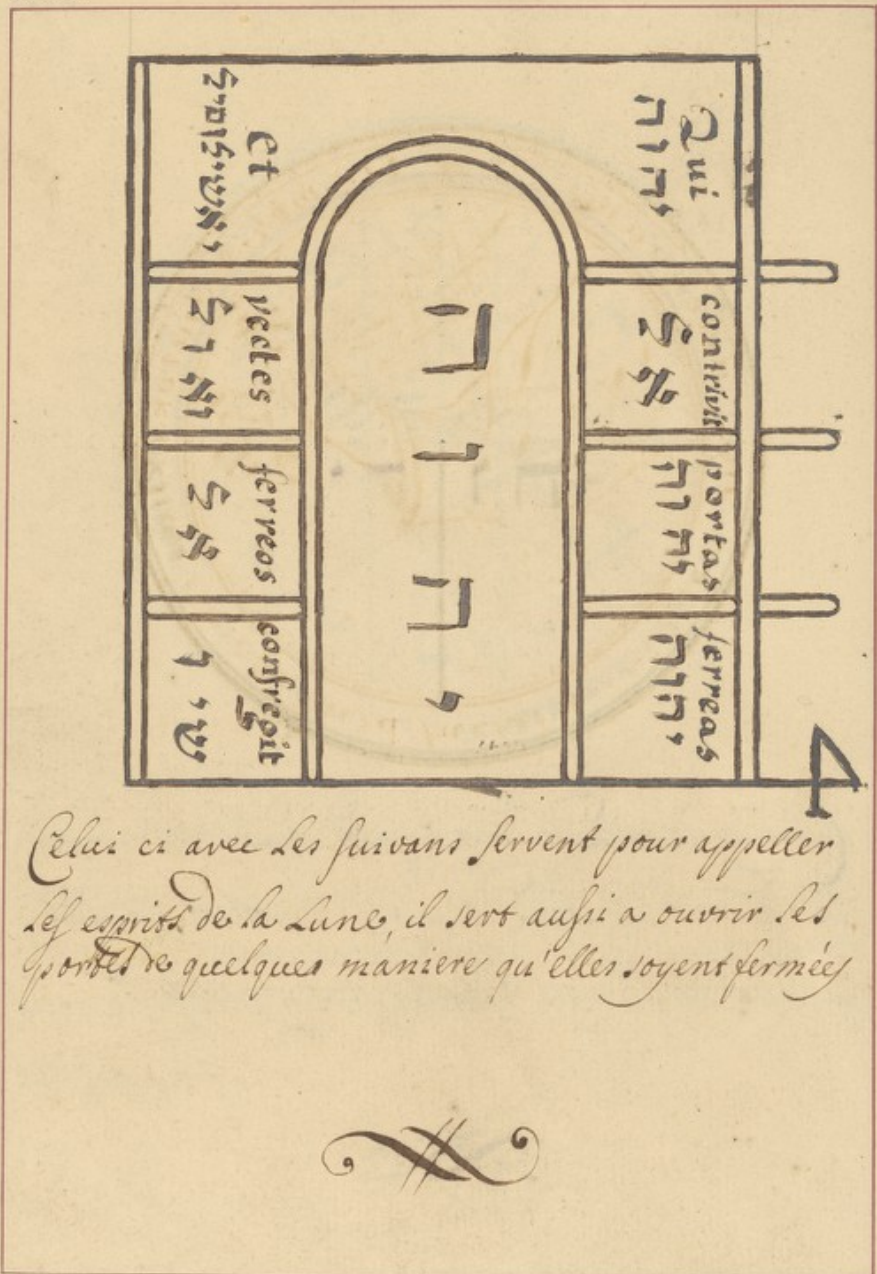 Qui contrivit portas ferreas
יהוה אל יהוה יהוה
יהוה
Et vectes ferreos confregit
ואול אל שיו
Celui ci avec les suivans servent pour appeller
les esprits de la Lune, il sert aussi a ouvrir les
portes de quelques maniere qu'elles soyent fermées